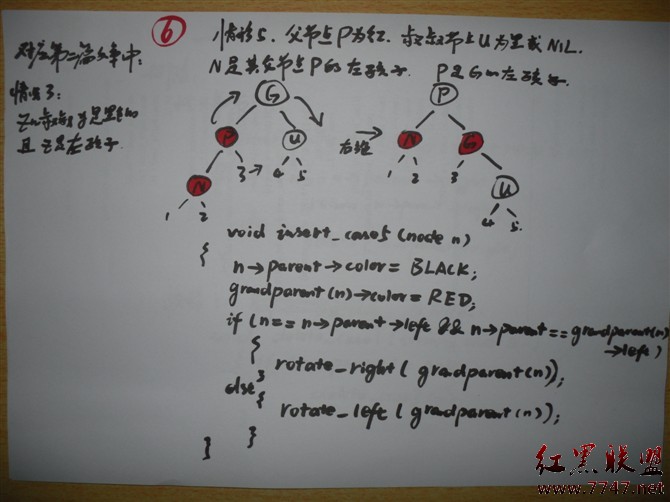 ⑥
情形5. 父节点P为红. 叔叔节点U为黑或NIL.
N是其父节点P的左孩子. P是G的左孩子.
对应第二篇文章中:
情况3:
z的叔叔y是黑色的
且z是左孩子.
G
P
U
N
3
4
5
1
2
右旋
P
N
G
1
2
3
U
4
5
void insert_case5(node n)
{
n→parent→color = BLACK;
grandparent(n)→color = RED;
if (n == n→parent→left && n→parent == grandparent(n)
→left)
{
rotate_right( grandparent(n));
}
else
{
rotate_left( grandparent(n));
}
}
红黑联盟
www.7747.net